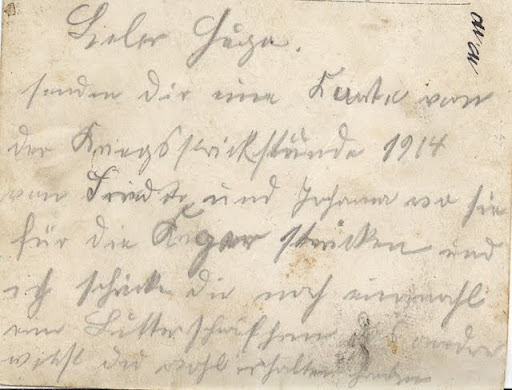 Lieber Hugo.
senden dir eine Karte von
der Kriegsstrickstunde 1914
von Frieda und Johanna wo sie
für die Krieger stricken und
ich schicke dir noch einmahl
eine andre
wirst du wohl erhalten haben